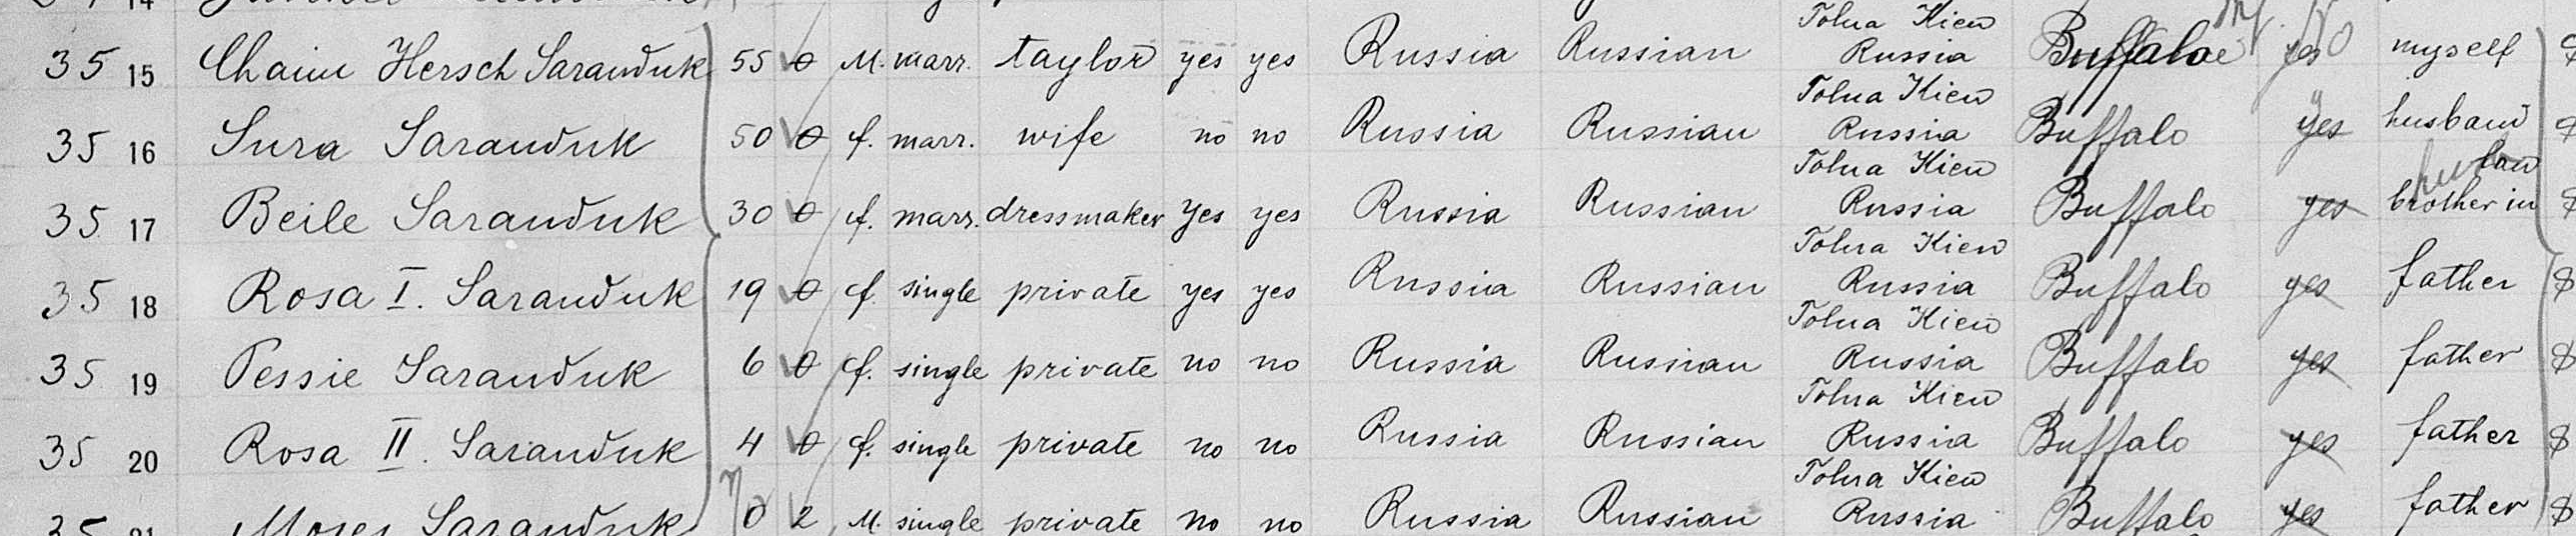 Tolna Kiew
35 15 Chaim Hersch Saranduk 55 0 M. marr. taylor yes yes Russia Russian Russia Buffalo yes no myself
Tolna Kiew
35 16 Sura Saranduk 50 0 f. marr. wife no no Russia Russian Russia Buffalo yes husband
Tolna Kiew law
35 17 Beile Saranduk 30 0 f. marr. dressmaker yes yes Russia Russian Russia Buffalo yes brother in
Tolna Kiew
35 18 Rosa I. Saranduk 19 0 f. single private yes yes Russia Russian Russia Buffalo yes father $
Tolna Kiew
35 19 Pessie Saranduk 6 0 f. single private no no Russia Russian Russia Buffalo yes father $
Tolna Kiew
35 20 Rosa II. Saranduk 4 0 f. single private no no Russia Russian Russia Buffalo yes father $
Tolna Kiew
35 21 Moses Saranduk 0 2 M. single private no no Russia Russian Russia Buffalo yes father $